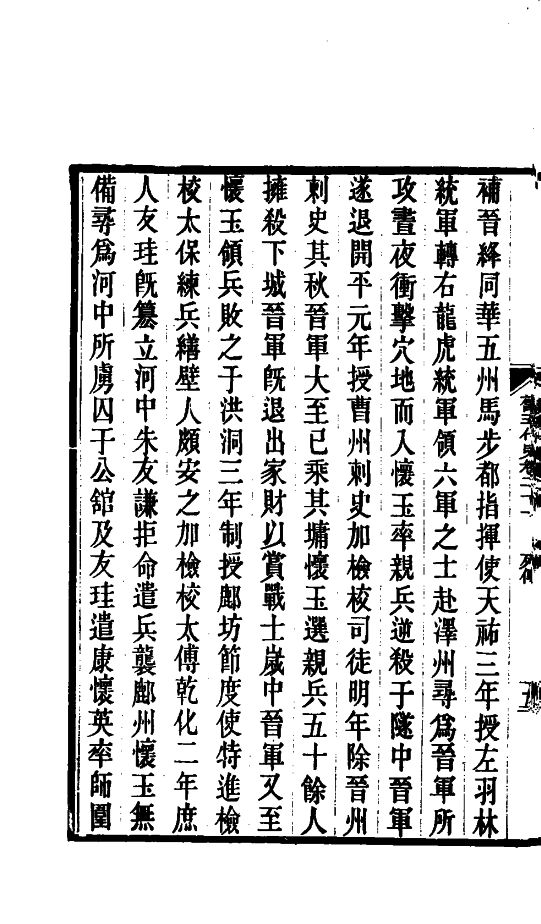 補晉絳同華五州馬步都指揮使天祐三年授左羽林
統軍轉右龍虎統軍領六軍之士赴澤州尋爲晉軍所
攻晝夜衝擊穴地而入懷玉率親兵逆殺于隧中晉軍
遂退開平元年授曹州刺史加檢校司徒明年除晉州
刺史其秋晉軍大至已乘其墉懷玉選親兵五十餘人
擁殺下城晉軍旣退出家財以賞戰士歲中晉軍又至
懷玉領兵敗之于洪洞三年制授鄜坊節度使特進檢
校太保練兵繕壁人頗安之加檢校太傅乾化二年庶
人友珪旣簒立河中朱友謙拒命遣兵襲鄜州懷玉無
備尋爲河中所虜囚于公舘及友珪遣康懷英率師圍